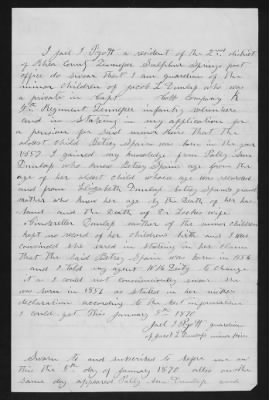 I Joel I Pyott a resident of the 2nd district
of Rhea County Tennessee Sulphur Springs post
office do swear that I am guardian of the
minor children of Jacob L Dunlap who was
a private in Capt Company K
Regiment Tennessee infantry volunteers
and in stating in my application for
a pension for said minor heirs that the
oldest child Betsy Spann was born in the year
1857 I gained my knowledge from Polly Ann
Dunlap who knew Betsy age from the
age of her oldest child whose age was recorded
and from Elizabeth Dunlap Betsy Spanns grand
mother who knew her age by the Death of her hus-
band and the Death of Dr wife
Dunlap mother of the minor children
kept no record of her childrens birth and I was
convinced she erred in stating in her claim
That the said Betsy Spann was born in 1856
and I told my agent W H to change
it as I could not conscienciously swear she
was born in 1856 as stated in her
declaration according to the best information
I could get This January 8th 1870
Joel I Pyott guardian
of Jacob L Dunlaps minor heirs
Sworn to and subscribed to before me on
this the 8th day of January 1870 also on the
same day appeared Polly Ann Dunlap and